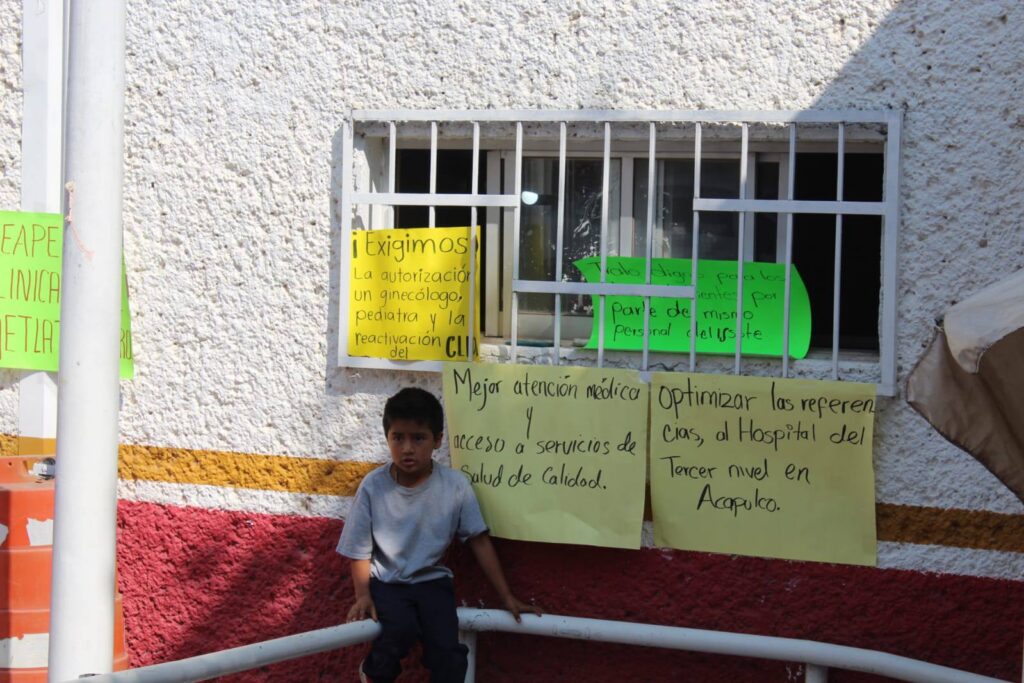 EAPE
LINICA
ETLAT
RO
¡Exigimos
La autorización
un ginecólogo,
pediatra y la
reactivación
del CLI
Trato digno para los
ientes por
parte de mismo
personal del issste
Mejor atención médica
y
acceso a servicios de
Salud de Calidad.
Optimizar las referen
cias, al Hospital del
Tercer nivel en
Acapulco.